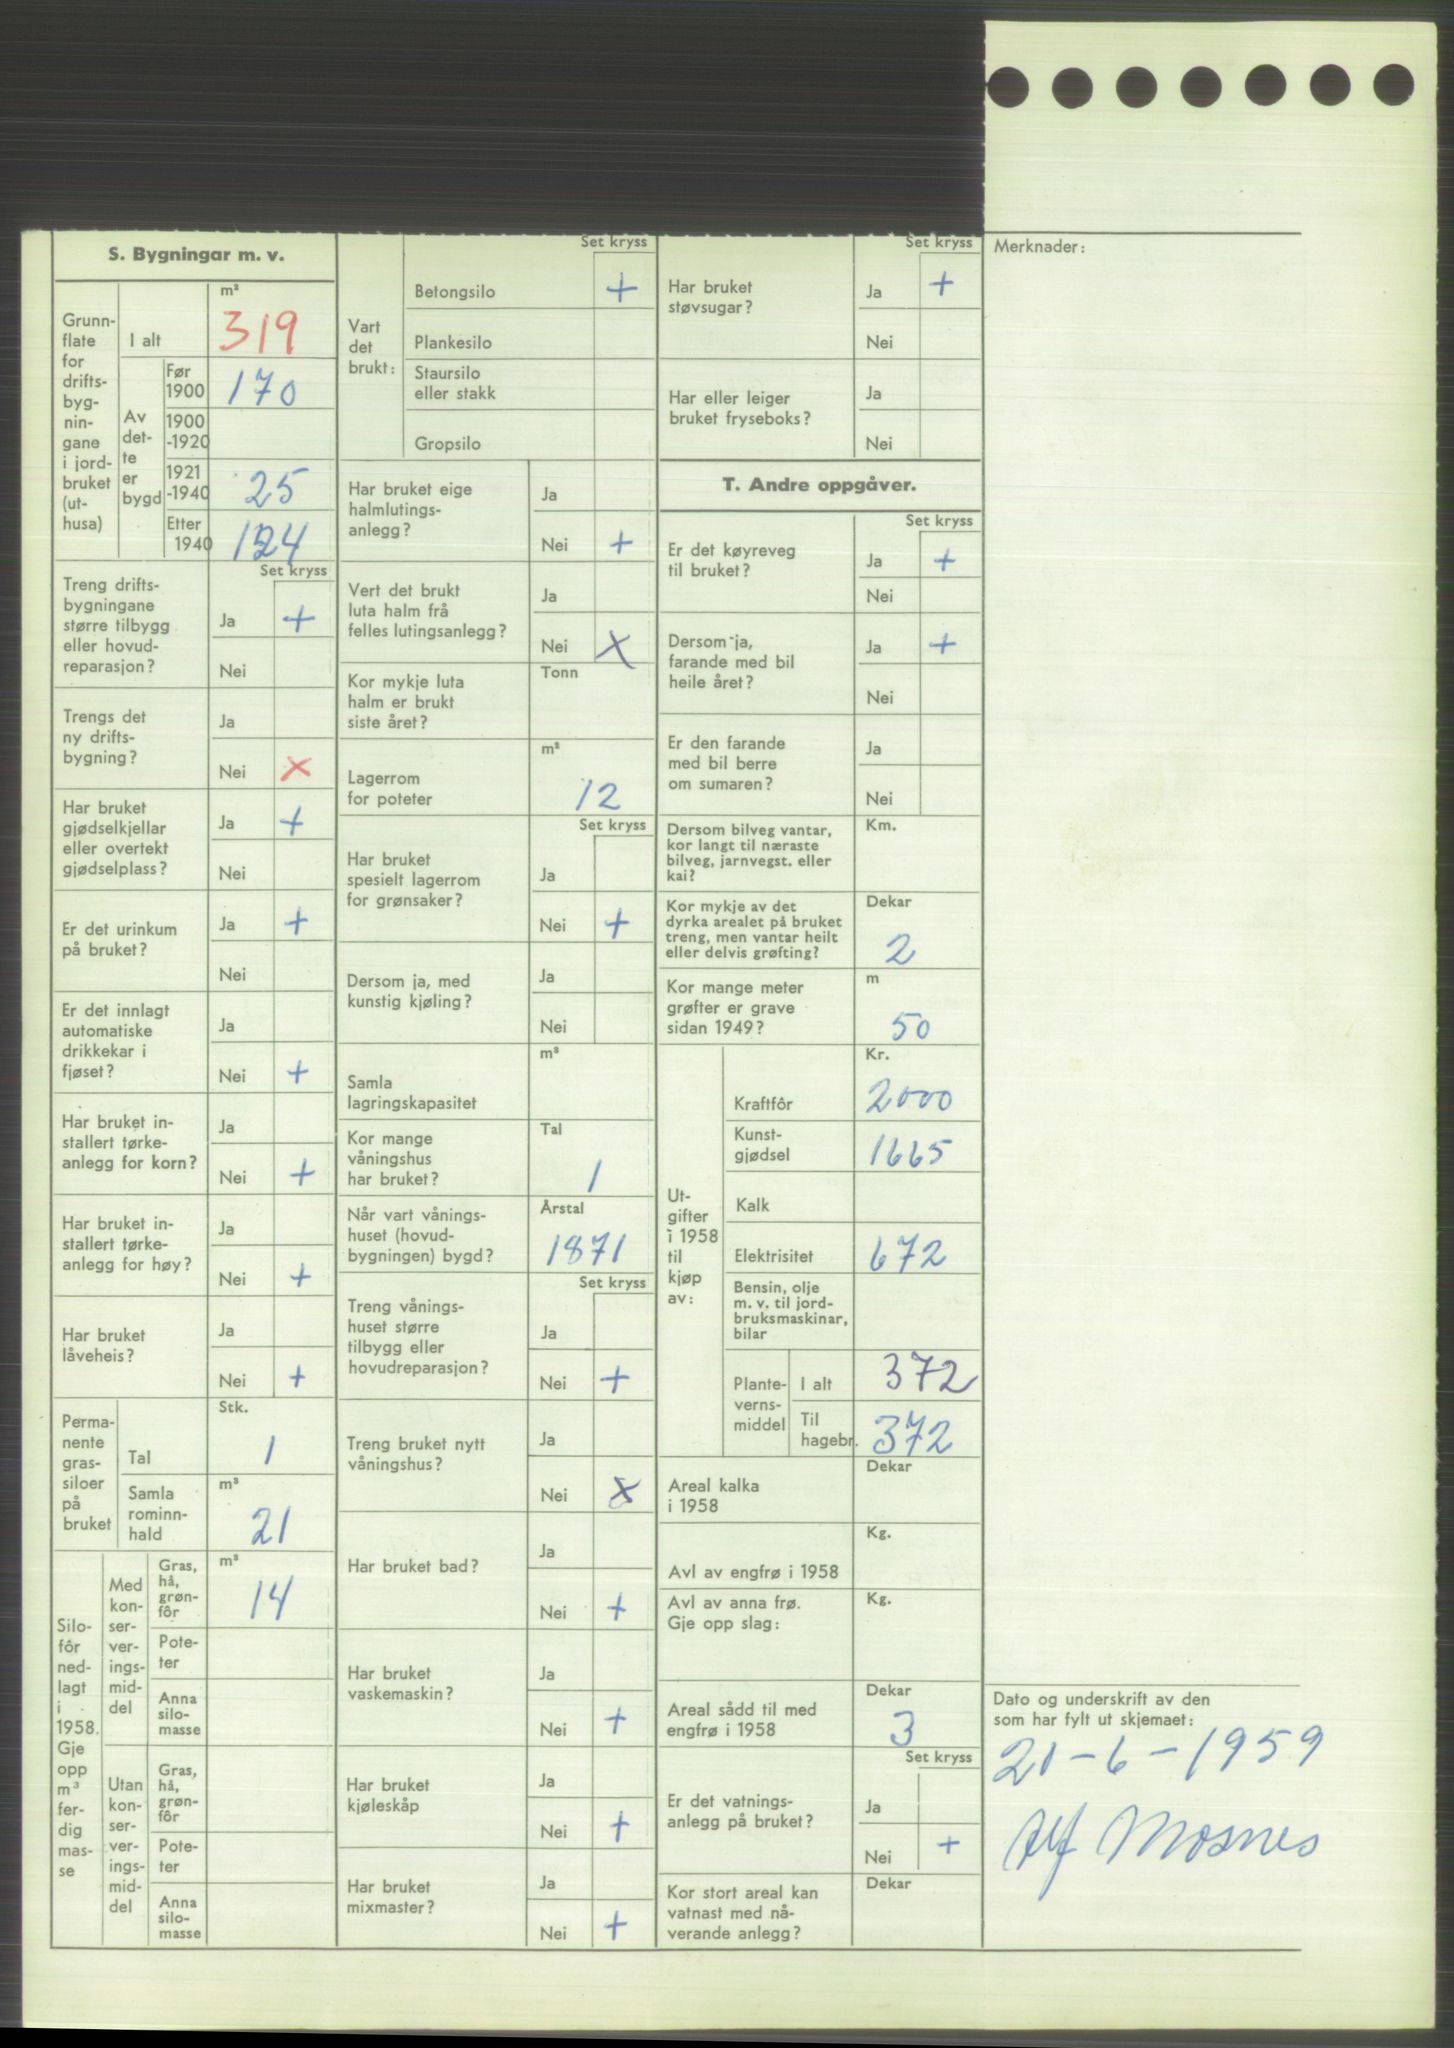 S. Bygningar m. v.
Grunn-
flate
for
drifts-
byg-
nin-
gane
i jord-
bruket
(ut-
husa)
m²
I alt 319
Av
det-
te
er
bygd
Før
1900 170
1900
-1920
1921
-1940 25
Etter
1940 124
Set kryss
Treng drifts-
bygningane
større tilbygg
eller hovud-
reparasjon?
Ja +
Nei
Trengs det
ny drifts-
bygning?
Ja
Nei x
Har bruket
gjødselkjellar
eller overtekt
gjødselplass?
Ja +
Nei
Er det urinkum
på bruket?
Ja +
Nei
Er det innlagt
automatiske
drikkekar i
fjøset?
Ja
Nei +
Har bruket in-
stallert tørke-
anlegg for korn?
Ja
Nei +
Har bruket in-
stallert tørke-
anlegg for høy?
Ja
Nei +
Har bruket
låveheis?
Ja
Nei +
Perma-
nente
gras-
siloer
på
bruket
Stk.
Tal 1
m³
Samla
rominn-
hald
21
Silo-
fôr
ned-
lagt
i
1958.
Gje
opp
m³
fer-
dig
mas-
se
Med
kon-
ser-
ver-
ings-
mid-
del
m³
Gras,
hå,
grøn-
fôr
14
Pote-
ter
Anna
silo-
masse
Utan
kon-
ser-
ver-
ings-
mid-
del
Gras,
hå,
grøn-
fôr
Pote-
ter
Anna
silo-
masse
Set kryss
Vart
det
brukt:
Betongsilo +
Plankesilo
Staursilo
eller stakk
Gropsilo
Har bruket eige
halmlutings-
anlegg?
Ja
Nei +
Vert det brukt
luta halm frå
felles lutingsanlegg?
Ja
Nei X
Kor mykje luta
halm er brukt
siste året?
Tonn
Lagerrom
for poteter
m²
12
Set kryss
Har bruket
spesielt lagerrom
for grønsaker?
Ja
Nei +
Dersom ja, med
kunstig kjøling?
Ja
Nei
Samla
lagringskapasitet
m³
Kor mange
våningshus
har bruket?
Tal
1
Når vart vånings-
huset (hovud-
bygningen) bygd?
Årstal
1871
Set kryss
Treng vånings-
huset større
tilbygg eller
hovudreparasjon?
Ja
Nei +
Treng bruket nytt
våningshus?
Ja
Nei x
Har bruket bad?
Ja
Nei +
Har bruket
vaskemaskin?
Ja
Nei +
Har bruket
kjøleskåp
Ja
Nei +
Har bruket
mixmaster?
Ja
Nei +
Set kryss
Har bruket
støvsugar?
Ja +
Nei
Har eller leiger
bruket fryseboks?
Ja
Nei
T. Andre oppgåver.
Set kryss
Er det køyreveg
til bruket?
Ja +
Nei
Dersom ja,
farande med bil
heile året?
Ja +
Nei
Er den farande
med bil berre
om sumaren?
Ja
Nei
Dersom bilveg vantar,
kor langt til næraste
bilveg, jarnvegst. eller
kai?
Km.
Kor mykje av det
dyrka arealet på bruket
treng, men vantar heilt
eller delvis grøfting?
Dekar
2
Kor mange meter
grøfter er grave
sidan 1949?
m
50
Ut-
gifter
i 1958
til
kjøp
av:
Kr.
Kraftfôr 2000
Kunst-
gjødsel 1665
Kalk
Elektrisitet 672
Bensin, olje
m. v. til jord-
bruksmaskinar,
bilar
Plante-
verns-
middel
I alt 372
Til
hagebr. 372
Areal kalka
i 1958
Dekar
Avl av engfrø i 1958
Kg.
Avl av anna frø.
Gje opp slag:
Kg.
Areal sådd til med
engfrø i 1958
Dekar
3
Set kryss
Er det vatnings-
anlegg på bruket?
Ja
Nei +
Kor stort areal kan
vatnast med nå-
verande anlegg?
Dekar
Merknader:
Dato og underskrift av den
som har fylt ut skjemaet:
21-6-1959
Alf Mosnes